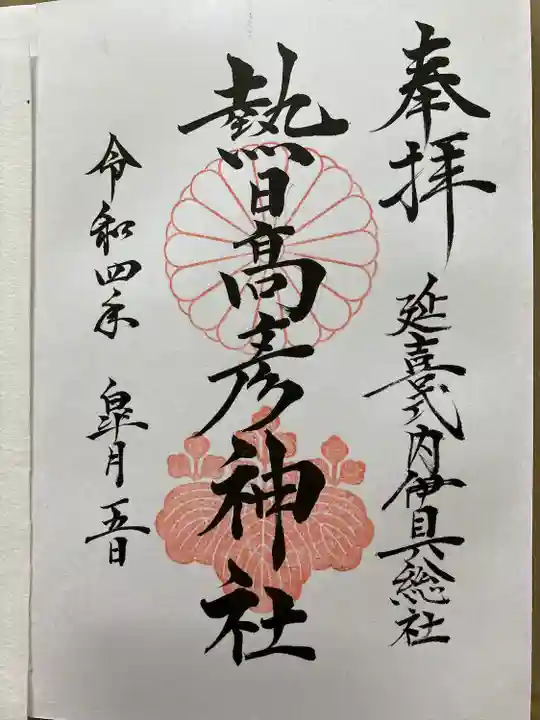 奉拝
延喜式内伊具総社
熱日高彦神社
令和四年 皐月五日